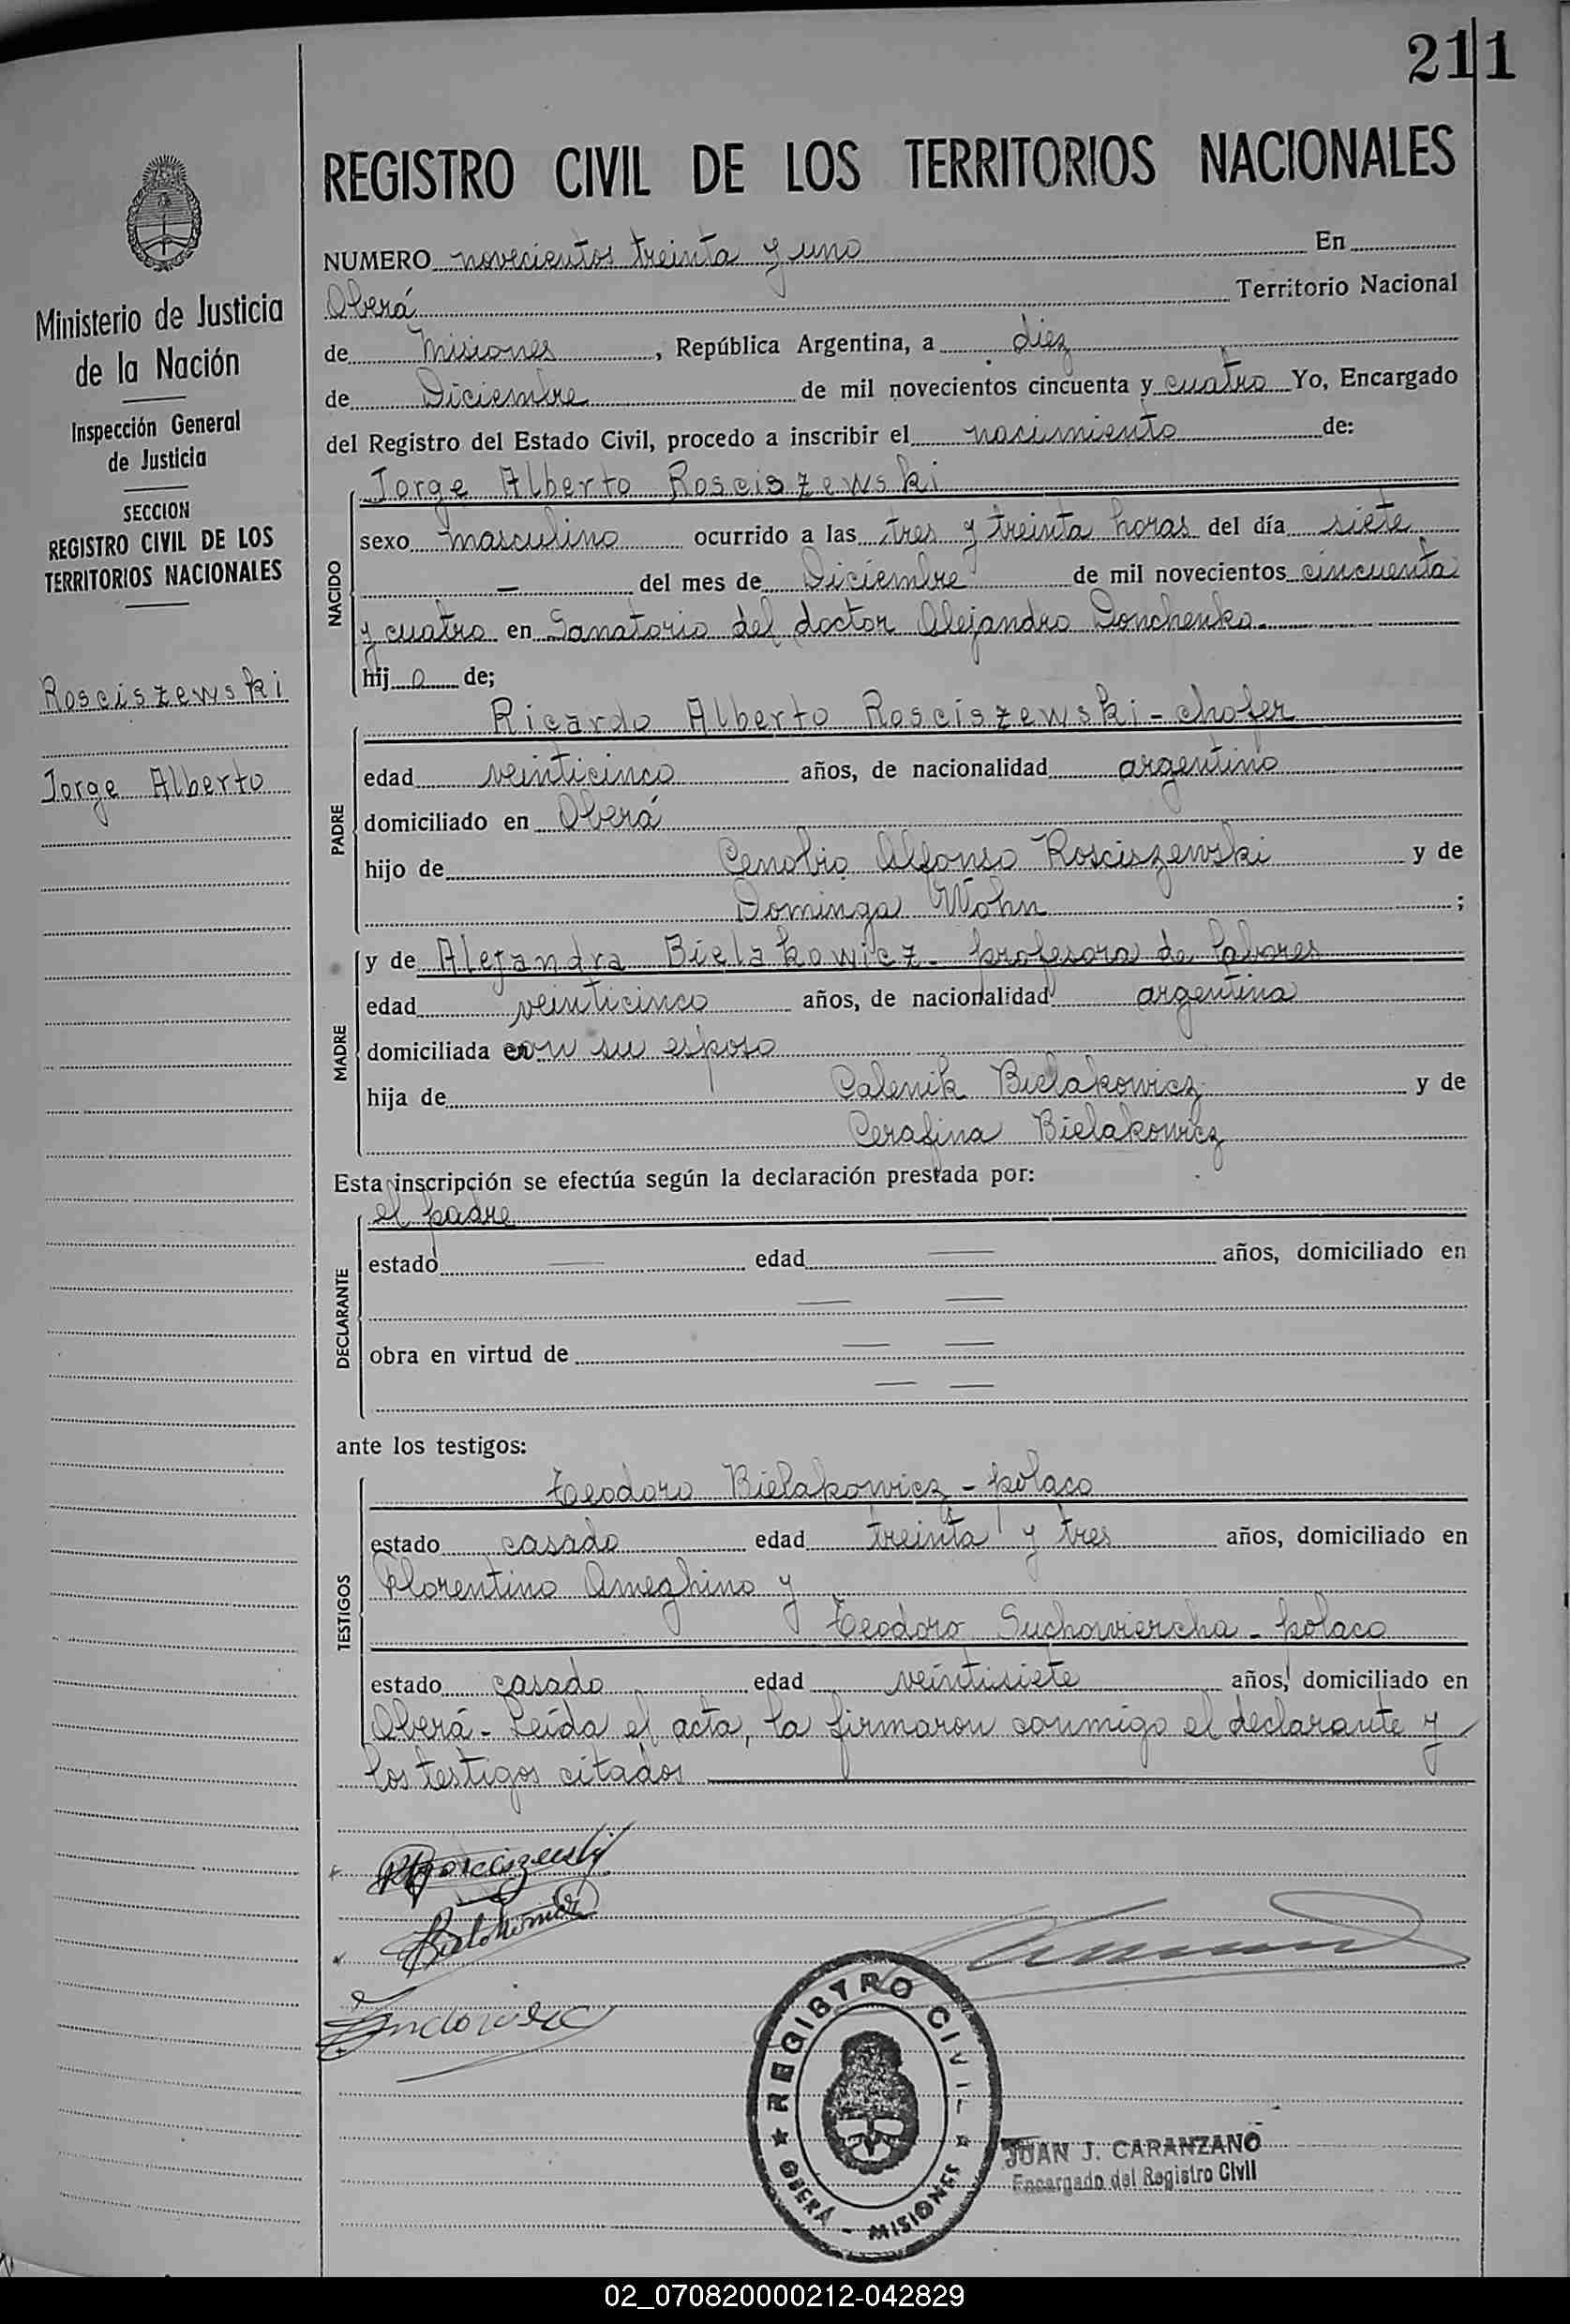 211
REGISTRO CIVIL DE LOS TERRITORIOS NACIONALES
NUMERO novecientos treinta y uno En
Oberá Territorio Nacional
de Misiones, República Argentina, a diez
de Diciembre de mil novecientos cincuenta y cuatro Yo, Encargado
del Registro del Estado Civil, procedo a inscribir el nacimiento de:
Ministerio de Justicia
de la Nación
Inspección General
de Justicia
SECCION
REGISTRO CIVIL DE LOS
TERRITORIOS NACIONALES
Rosciszewski
Jorge Alberto
NACIDO
Jorge Alberto Rosciszewski
sexo masculino ocurrido a las tres y treinta horas del día siete
— del mes de Diciembre de mil novecientos cincuenta
y cuatro en Sanatorio del doctor Alejandro Donchenko.
hijo de;
PADRE
Ricardo Alberto Rosciszewski - chofer
edad veinticinco años, de nacionalidad argentino
domiciliado en Oberá
hijo de Cenobio Alfonso Rosciszewski y de
Dominga Wohn ;
MADRE
y de Alejandra Bielakowicz - profesora de labores
edad veinticinco años, de nacionalidad argentina
domiciliada con su esposo
hija de Calenik Bielakowicz y de
Cerafina Bielakowicz
Esta inscripción se efectúa según la declaración prestada por:
DECLARANTE
el padre
estado — edad — años, domiciliado en
— —
obra en virtud de — —
— —
ante los testigos:
TESTIGOS
Teodoro Bielakowicz - polaco
estado casado edad treinta y tres años, domiciliado en
Florentino Ameghino y
Teodoro Suchowiercha - polaco
estado casado edad veintisiete años, domiciliado en
Oberá - Leída el acta, la firmaron conmigo el declarante y
los testigos citados
REGISTRO CIVIL
OBERÁ - MISIONES
JUAN J. CARANZANO
Encargado del Registro Civil
02_070820000212-042829